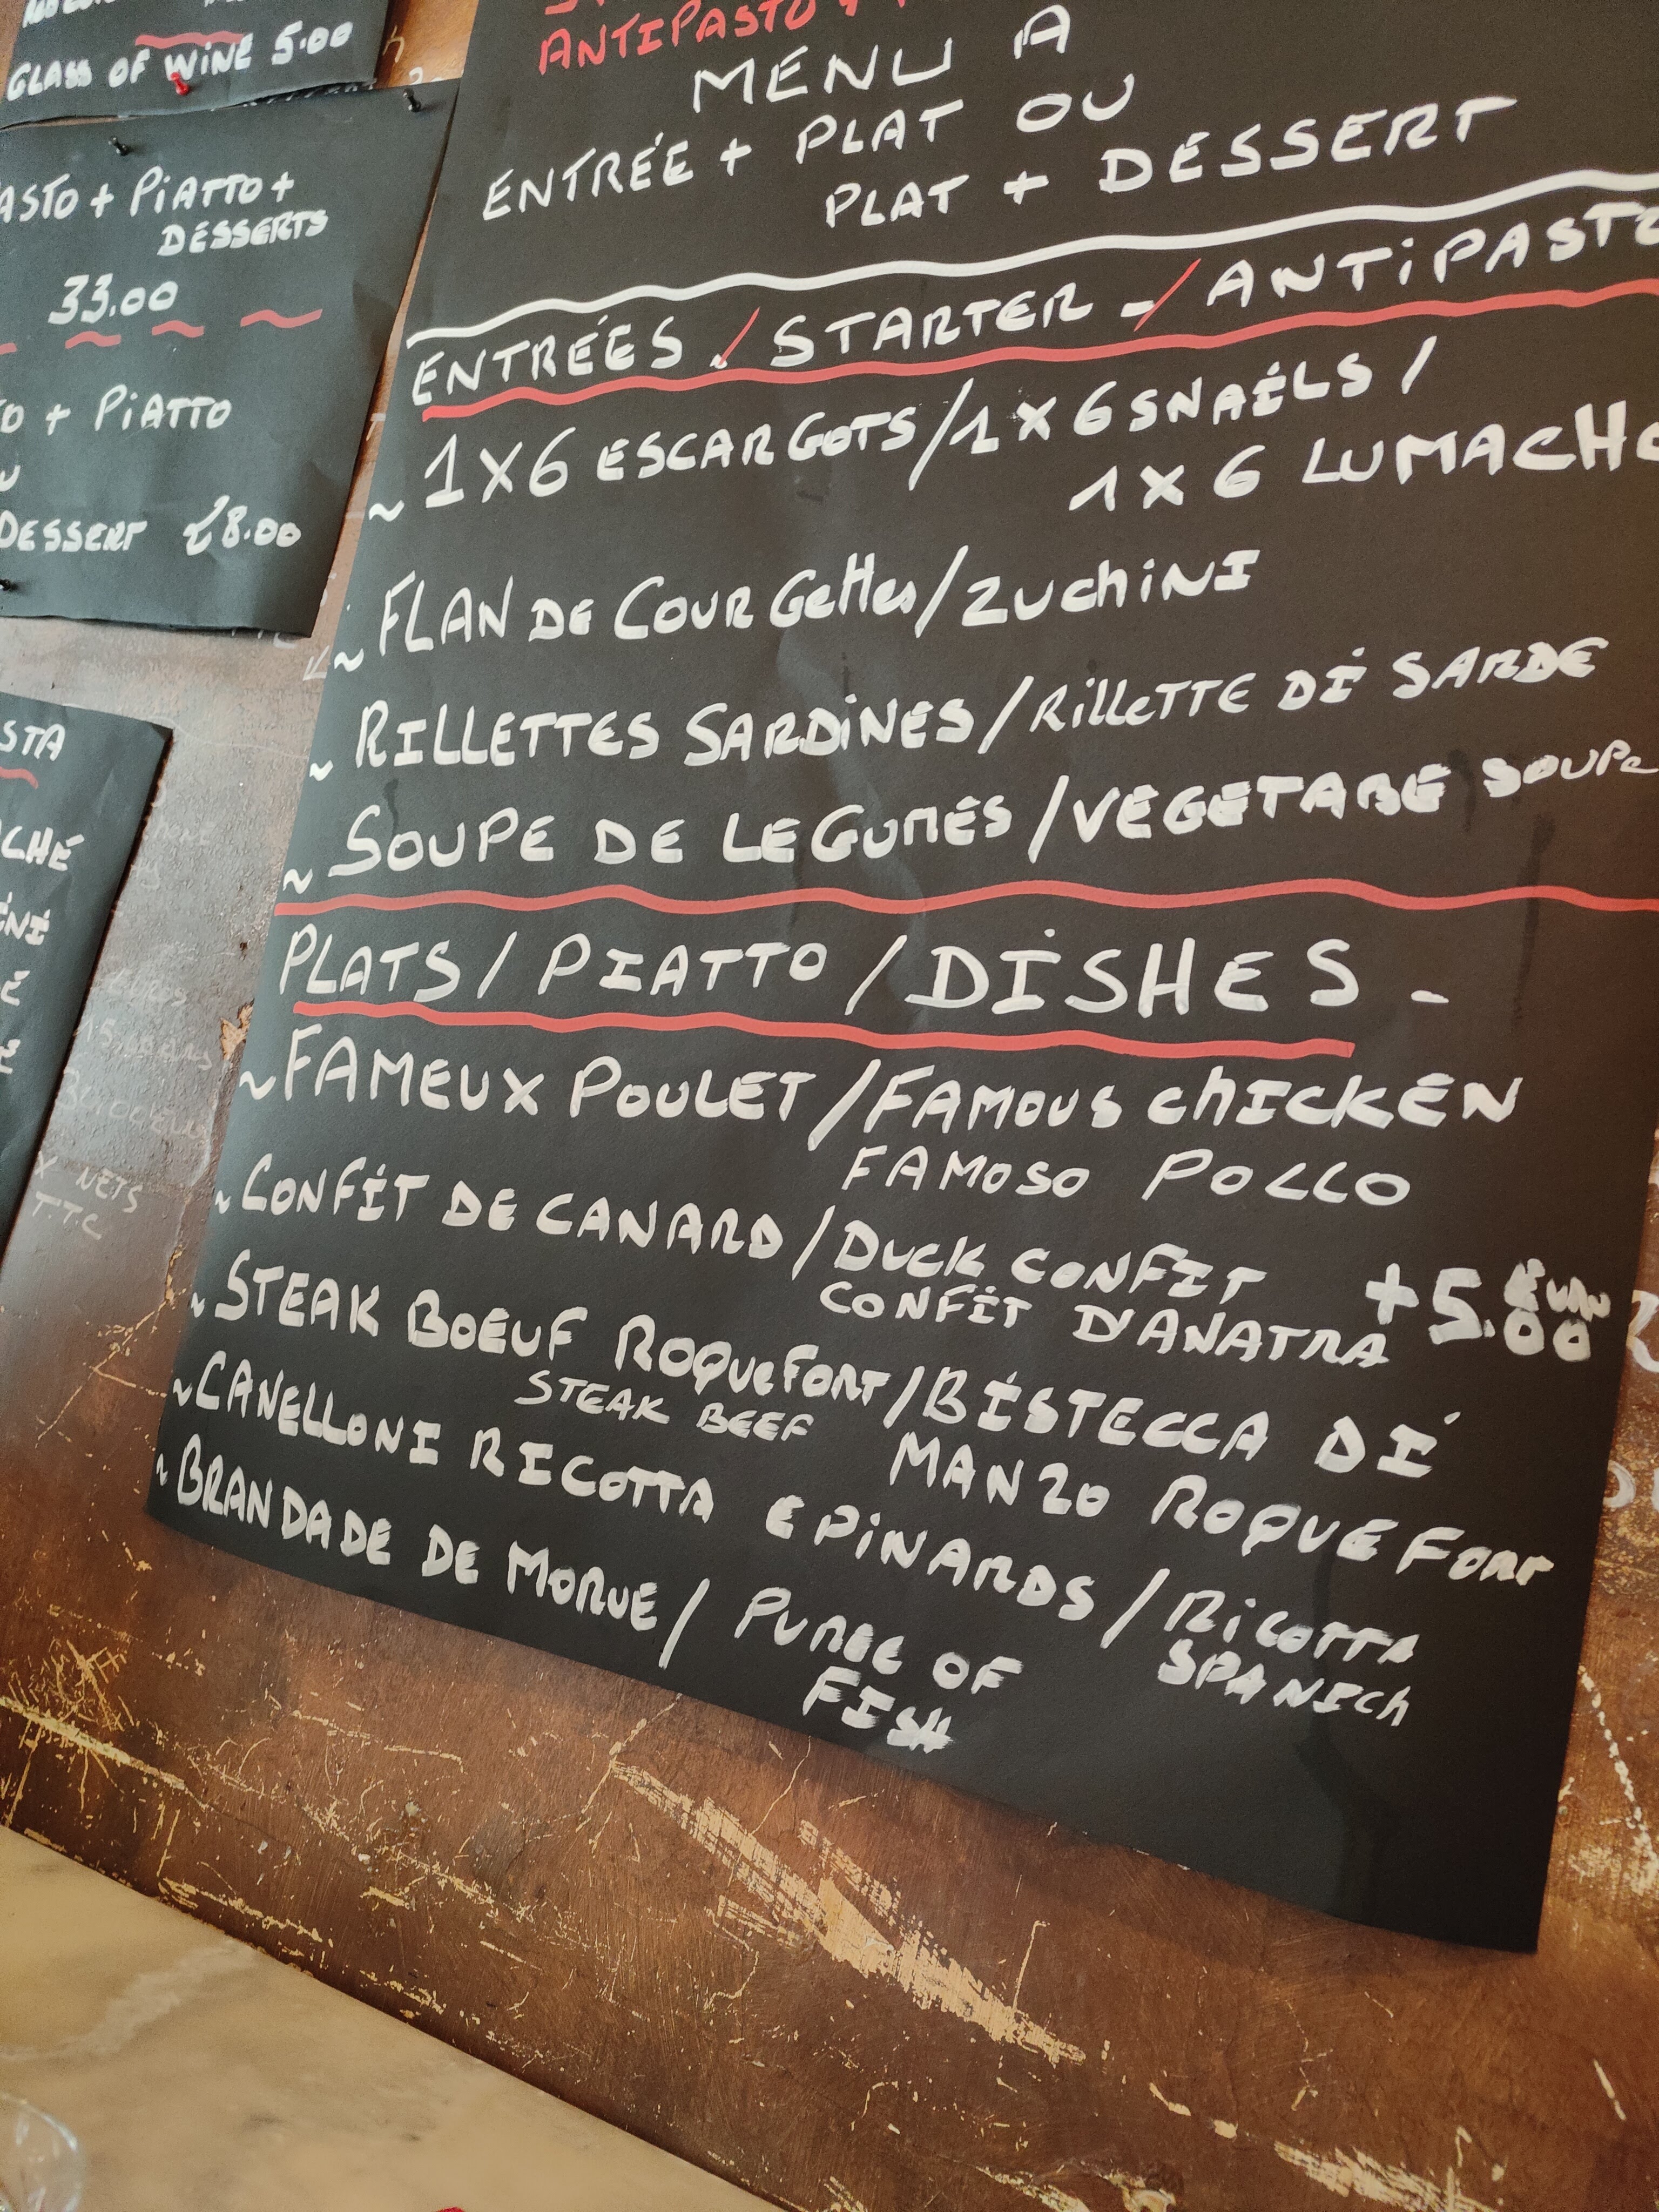 GLASS OF WINE 5.00
+ PIATTO +
DESSERTS
33.00
+ PIATTO
DESSERT 28.00
ANTIPASTO +
MENU A
ENTRÉE + PLAT OU
PLAT + DESSERT
ENTRÉES / STARTER - / ANTIPASTO
~ 1X6 ESCARGOTS / 1X6 SNAILS /
1X6 LUMACHE
~ FLAN DE COURGETTES / ZUCHINI
~ RILLETTES SARDINES / RILLETTE DI SARDE
~ SOUPE DE LEGUMES / VEGETABE SOUPE
PLATS / PIATTO / DISHES -
~ FAMEUX POULET / FAMOUS CHICKEN
FAMOSO POLLO
~ CONFIT DE CANARD / DUCK CONFIT +5.00
CONFIT D'ANATRA
~ STEAK BOEUF ROQUEFORT / BISTECCA DI
STEAK BEEF MANZO ROQUEFORT
~ CANELLONI RICOTTA EPINARDS / RICOTTA
SPANICH
~ BRANDADE DE MORUE / PUREE OF
FISH
X NETS
T.T.C